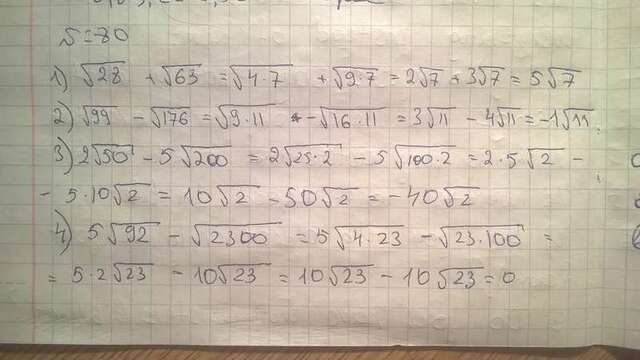 5=80
1) √28 + √63 = √4·7 + √9·7 = 2√7 + 3√7 = 5√7
2) √99 - √176 = √9·11 - √16·11 = 3√11 - 4√11 = -1√11.
3) 2√50 - 5√200 = 2√25·2 - 5√100·2 = 2·5√2 -
- 5·10√2 = 10√2 - 50√2 = -40√2
4) 5√92 - √2300 = 5√4·23 - √23·100 =
= 5·2√23 - 10√23 = 10√23 - 10√23 = 0